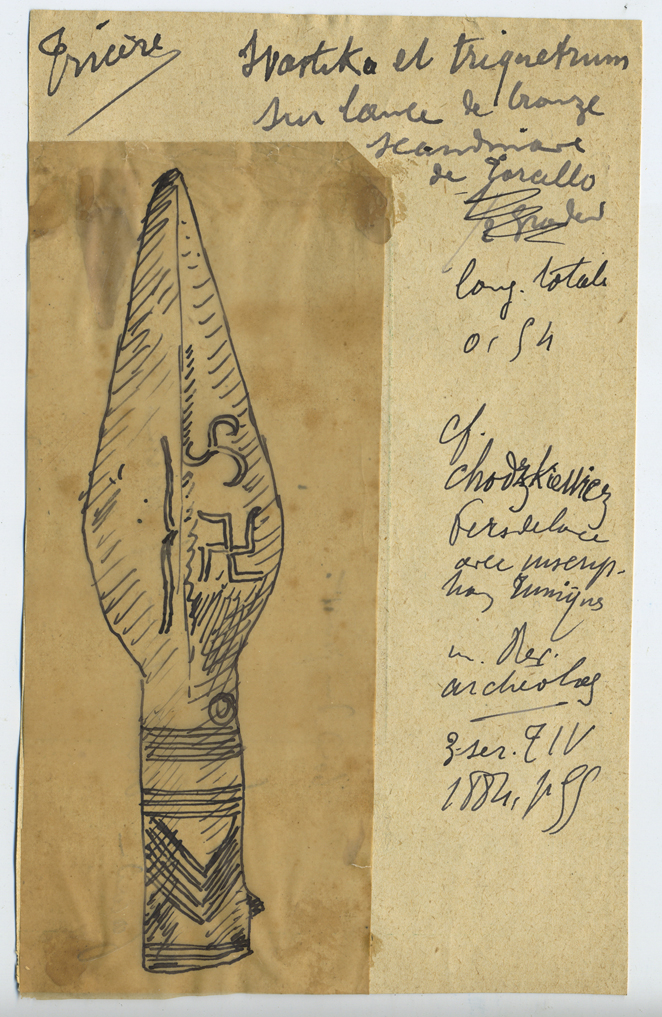 Svastika et triquetrum
sur lance de bronze
scandinave
de Torcello
long. totale
0,54
cf.
Chodzkiewicz
Fers de lance
avec inscrip-
runiques
in. Rev.
archéolog
3e ser. T IV
1884, p 55